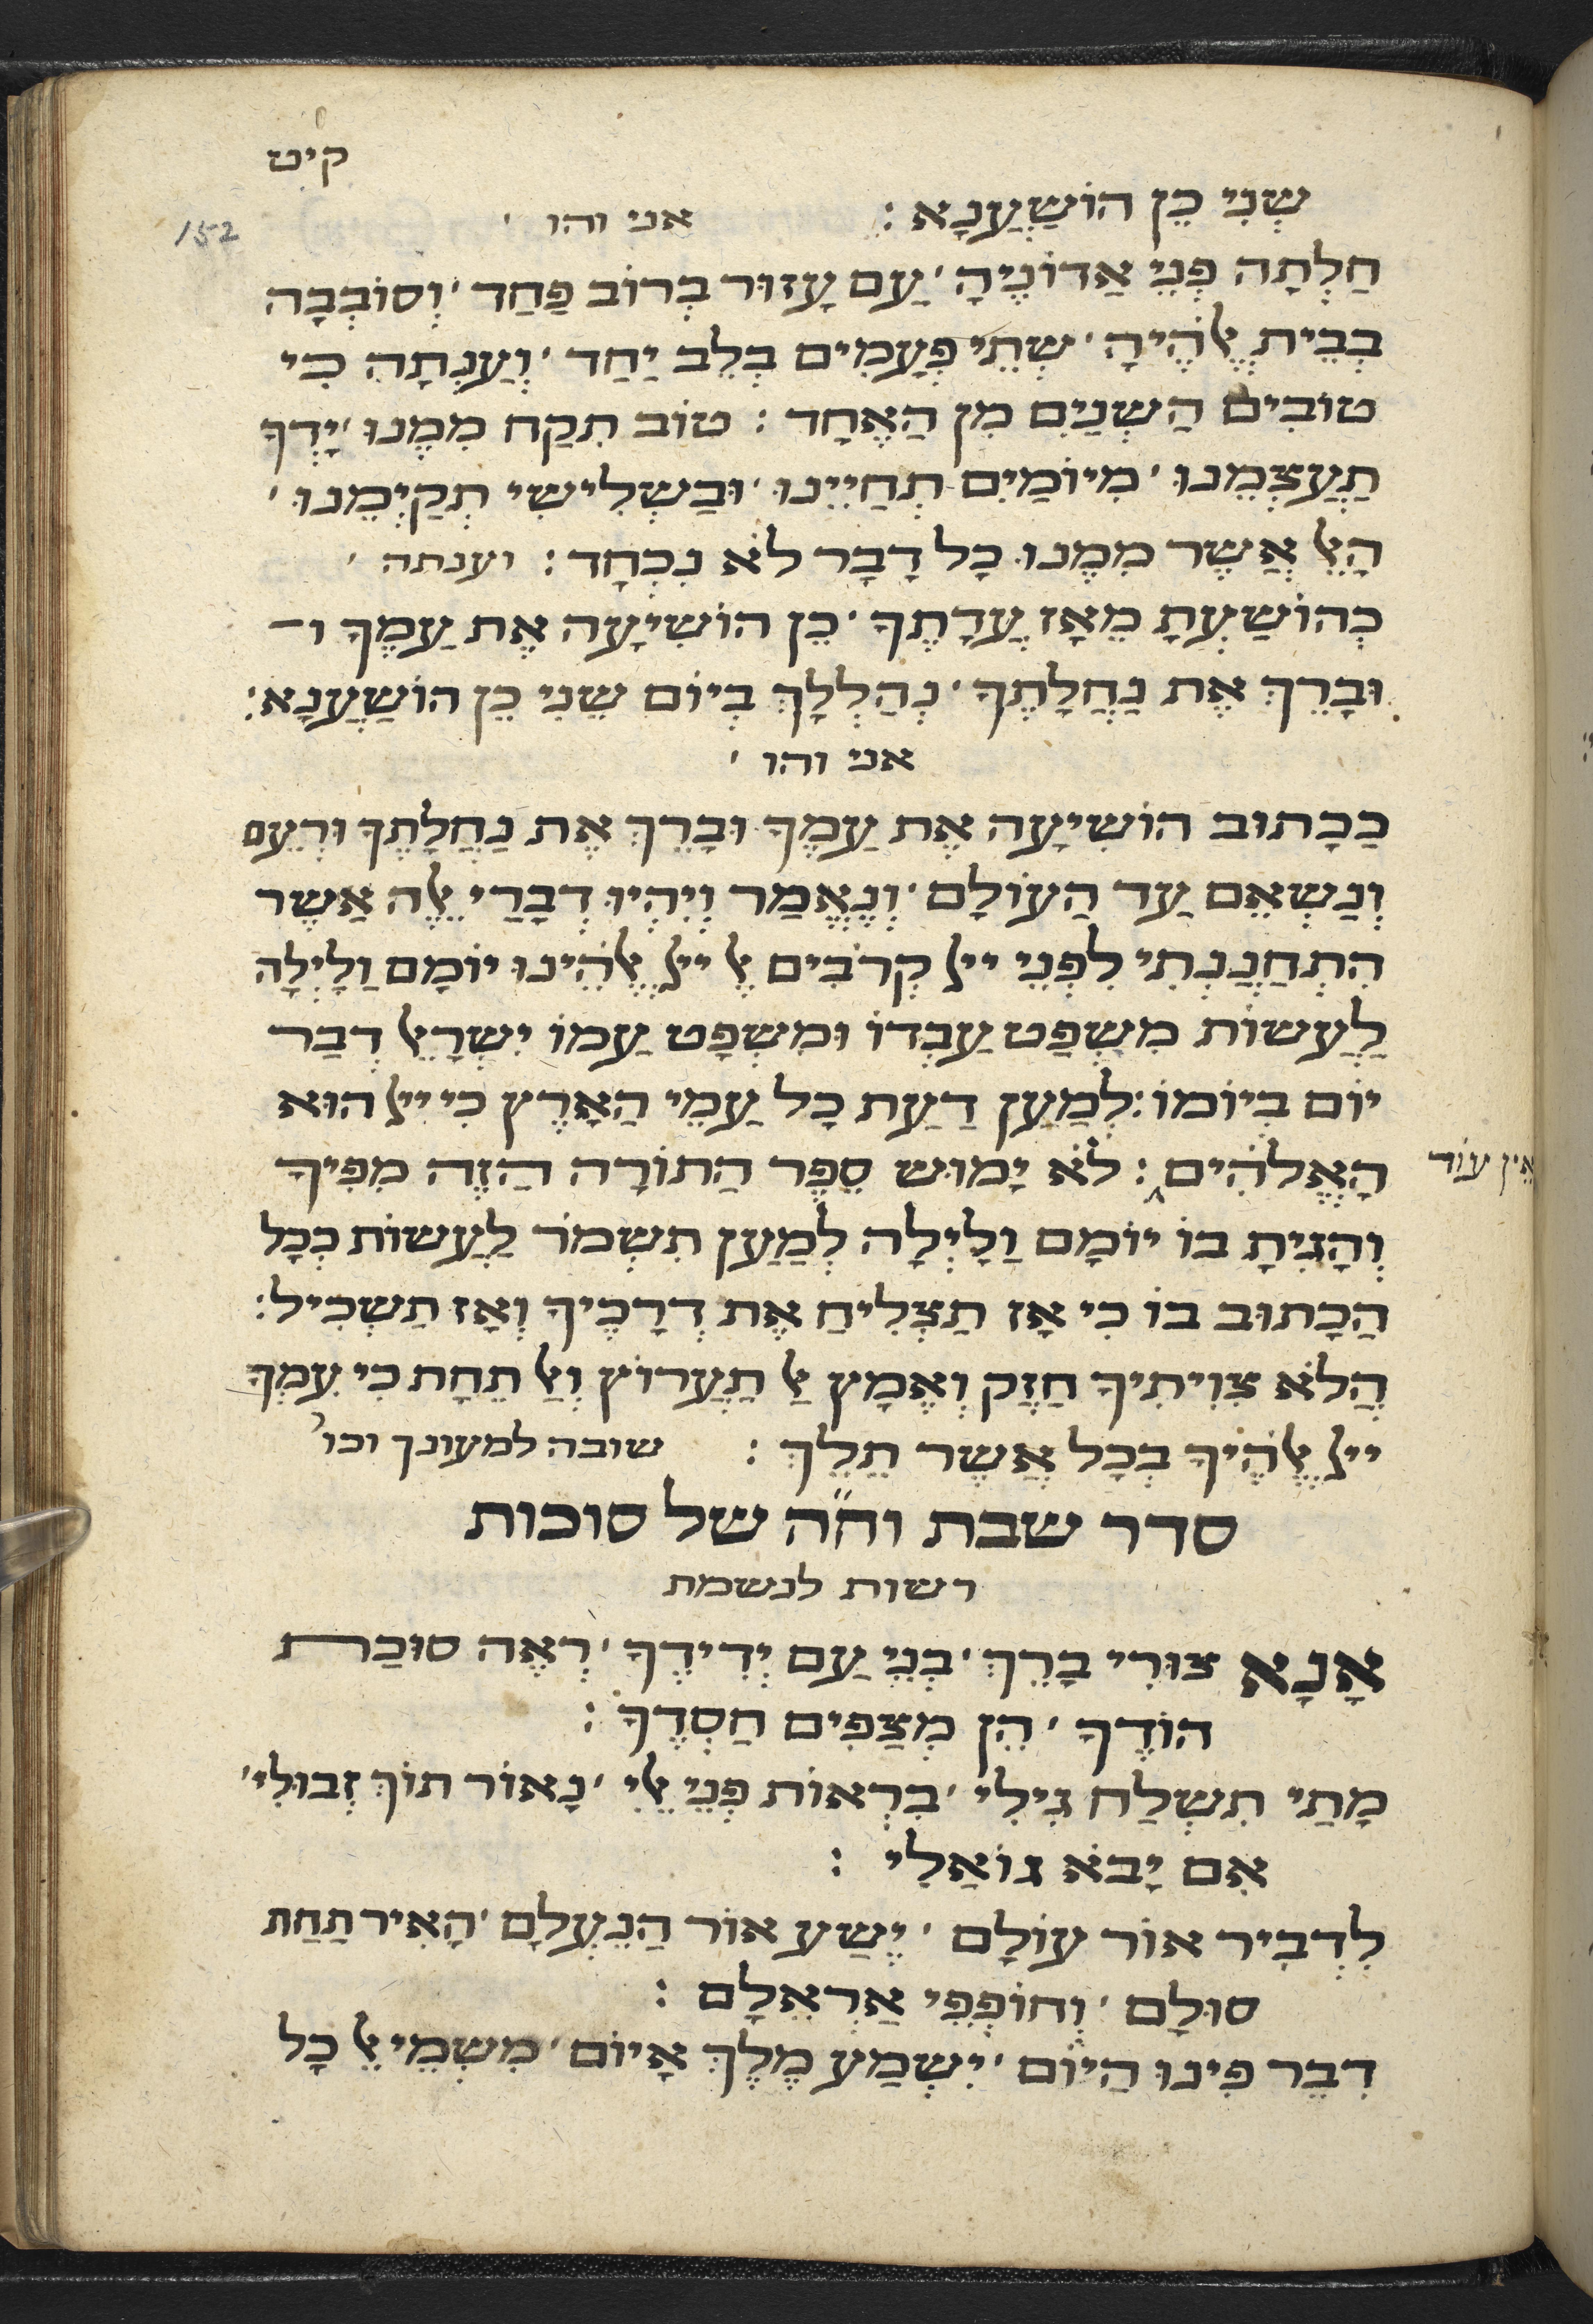 קיט
152
שְׁנִי כֵּן הוֹשַׁעֲנָא : אני והו ׳
חִלְּתָה פְּנֵי אֲדוֹנֶיהָ ׳ עַם עָזוּר בְּרוֹב פַּחַד ׳ וְסוֹבְבָה
בְּבֵית אֱלֹהֶיהָ ׳ שְׁתֵּי פְעָמִים בְּלֵב יַחַד ׳ וְעַנְתָה כִּי
טוֹבִים הַשְּׁנַיִם מִן הָאֶחָד : טוֹב תִּקַּח מִמֶּנוּ ׳ יָדְךָ
תַעֲצְמֵנוּ ׳ מִיּוֹמַיִם תְּחַיֵינוּ ׳ וּבַשְּׁלִישִׁי תְקַיְּמֵנוּ ׳
הָאֵל אֲשֶׁר מִמֶּנוּ כָּל דָּבָר לֹא נִכְחָד : וענתה ׳
כְּהוֹשַׁעְתָּ מֵאָז עֲדָתֶךָ ׳ כֵּן הוֹשִׁיעָה אֶת עַמֶּךָ ו־
וּבָרֵךְ אֶת נַחֲלָתֶךָ ׳ נְהַלְלָךְ בְּיוֹם שֵׁנִי כֵּן הוֹשַׁעֲנָא :
אני והו ׳
כַּכָּתוּב הוֹשִׁיעָה אֶת עַמֶּךָ וּבָרֵךְ אֶת נַחֲלָתֶךָ וּרְעֵם
וְנַשְּׂאֵם עַד הָעוֹלָם ׳ וְנֶאֱמַר וְיִהְיוּ דְבָרַי אֵלֶּה אֲשֶׁר
הִתְחַנַּנְתִּי לִפְנֵי ייי קְרֹבִים אֶל ייי אֱלֹהֵינוּ יוֹמָם וָלָיְלָה
לַעֲשׂוֹת מִשְׁפַּט עַבְדּוֹ וּמִשְׁפַּט עַמּוֹ יִשְׂרָאֵל דְּבַר
יוֹם בְּיוֹמוֹ : לְמַעַן דַּעַת כָּל עַמֵּי הָאָרֶץ כִּי ייי הוּא
הָאֱלֹהִים : לֹא יָמוּשׁ סֵפֶר הַתּוֹרָה הַזֶּה מִפִּיךָ
אֵין עוֹד
וְהָגִיתָ בּוֹ יוֹמָם וָלַיְלָה לְמַעַן תִּשְׁמֹר לַעֲשׂוֹת כְּכָל
הַכָּתוּב בּוֹ כִּי אָז תַּצְלִיחַ אֶת דְּרָכֶיךָ וְאָז תַּשְׂכִּיל :
הֲלֹא צִוִּיתִיךָ חֲזַק וֶאֱמָץ אַל תַּעֲרוֹץ וְאַל תֵּחָת כִּי עִמְּךָ
ייי אֱלֹהֶיךָ בְּכָל אֲשֶׁר תֵּלֵךְ : שובה למעונך וכו׳
סדר שבת וח״ה של סוכות
רשות לנשמת
אָנָא צוּרִי בָרֵךְ ׳ בְּנֵי עַם יְדִידֶךָ ׳ רְאֵה סוּכַּת
הוֹדֶךָ ׳ הֵן מְצַפִּים חַסְדֶּךָ :
מָתַי תִּשְׁלַח גִּילִי ׳ בִּרְאוֹת פְּנֵי אֵלִי ׳ נָאוֹר תּוֹךְ זְבוּלִי ׳
אִם יָבֹא גוֹאֲלִי :
לִדְבִיר אוֹר עוֹלָם ׳ יֶשַׁע אוֹר הַנֶּעְלָם ׳ הָאִיר תַּחַת
סוּלָּם ׳ וְחוֹפְפִי אֶרְאֵלָּם :
דִּבֵּר פִּינוּ הַיּוֹם ׳ יִשְׁמַע מֶלֶךְ אָיוֹם ׳ מִשְּׁמֵי אֵל כָּל